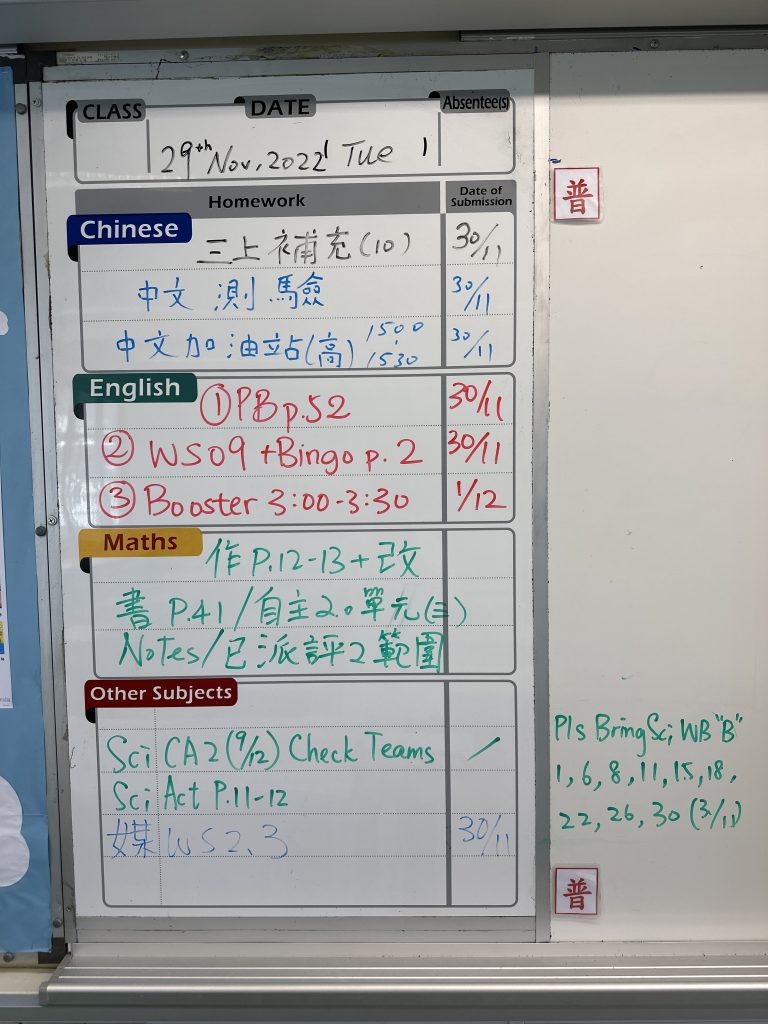 CLASS DATE Absentee(s)
29th Nov, 2022 Tue 1
Homework Date of Submission
Chinese
三上補充(10) 30/11
中文 測驗 30/11
中文加油站(高) 1500 - 1530 30/11
English
① PB p.52 30/11
② WS09 + Bingo p. 2 30/11
③ Booster 3:00-3:30 1/12
Maths
作 P.12-13 + 改
書 P.41 / 自主2.0 單元(三)
Notes / 已派評2範圍
Other Subjects
Sci CA2 (9/12) Check Teams /
Sci Act P.11-12
媒 WS2.3 30/11
普
Pls Bring Sci WB "B"
1, 6, 8, 11, 15, 18,
22, 26, 30
普